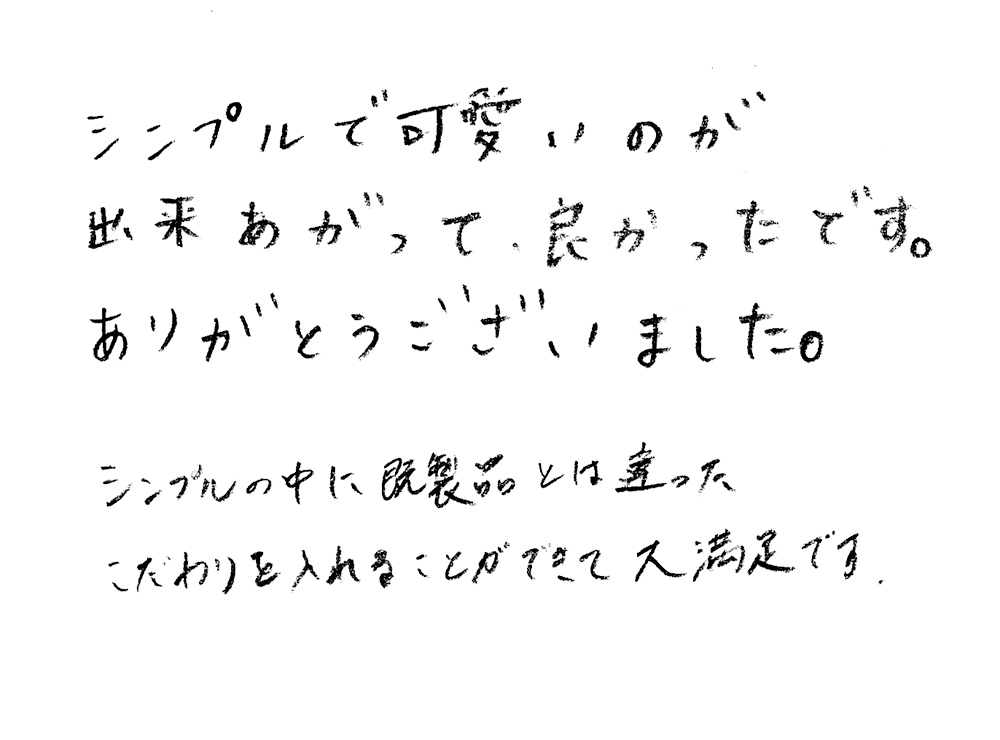 シンプルで可愛いのが
出来あがって、良かったです。
ありがとうございました。
シンプルの中に既製品とは違った
こだわりを入れることができて大満足です.